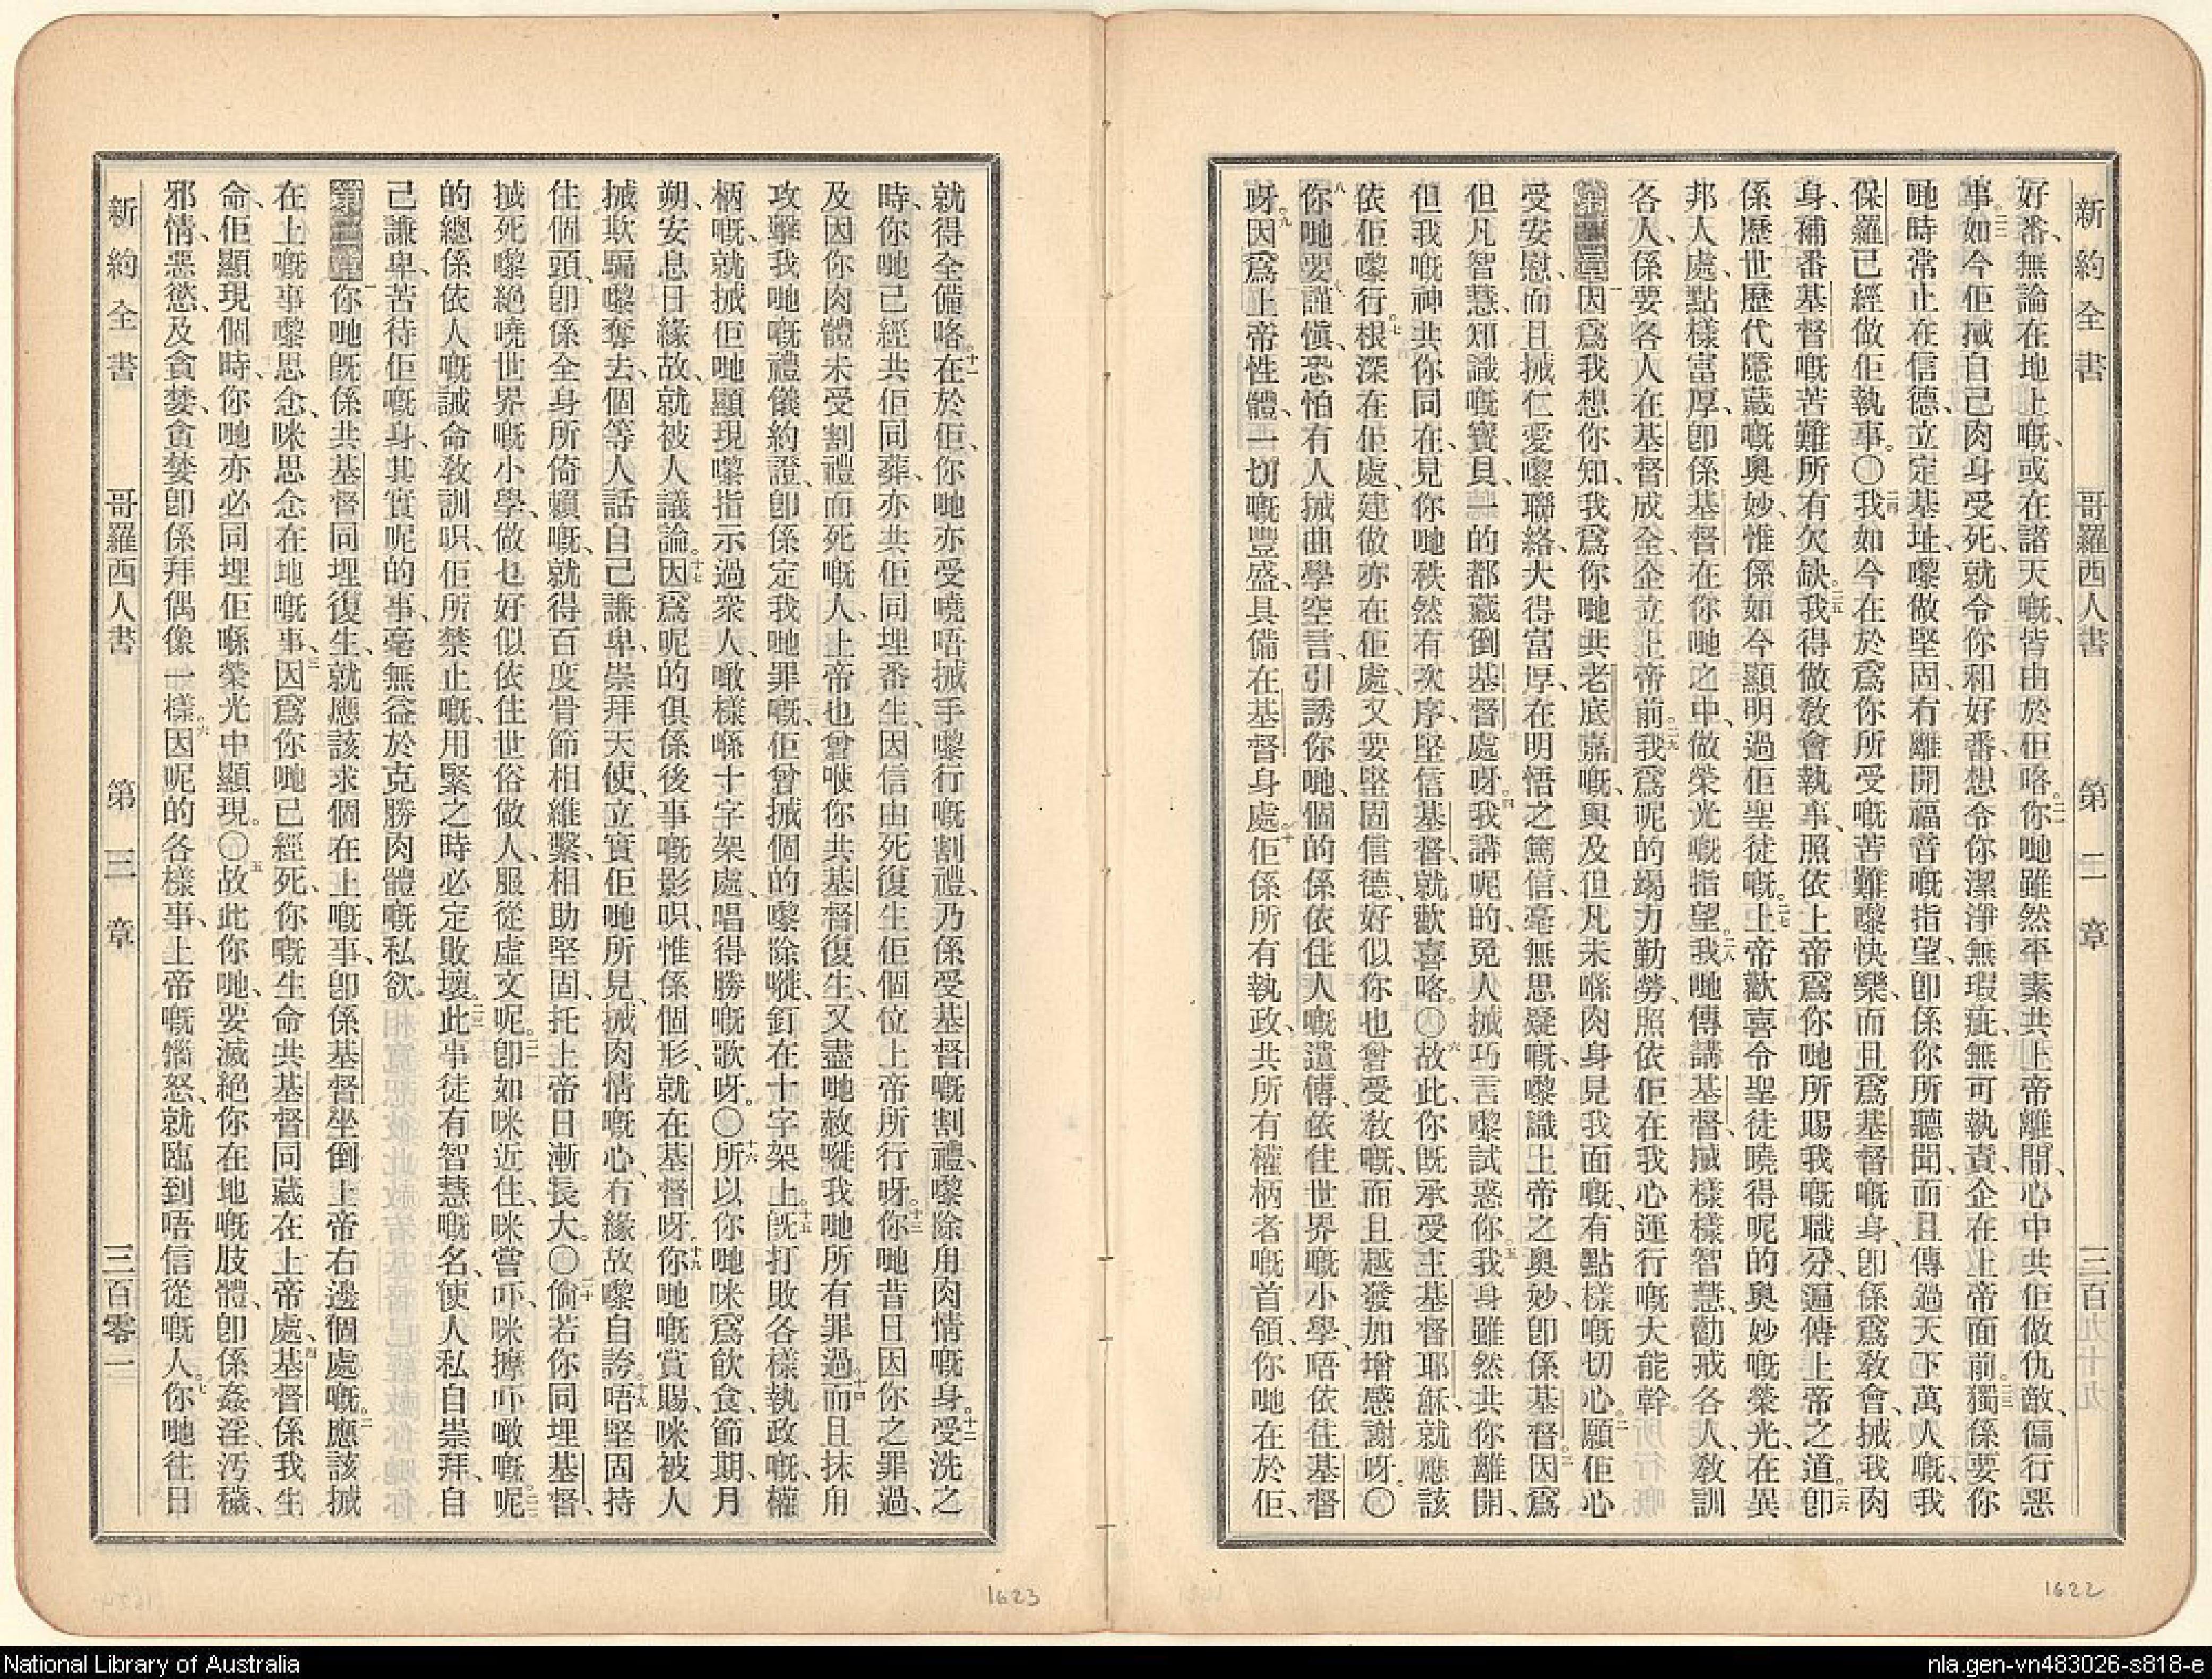 新約全書 哥羅西人書 第二章 三百九十九
好番、無論在地上嘅、或在諸天嘅、皆由於佢咯。二一你哋雖然平素共上帝離間、心中共佢做仇敵、偏行惡
事。二二如今佢搣自己肉身受死、就令你和好番、想令你潔淨無瑕疵、無可執責、企在上帝面前。二三獨係要你
哋時常止在信德、立定基址、嚟做堅固、冇離開福音嘅指望、卽係你所聽聞、而且傳過天下萬人嘅、我
保羅已經做佢執事。〇二四我如今在於爲你所受嘅苦難嚟快樂、而且爲基督嘅身、卽係爲敎會、搣我肉
身、補番基督嘅苦難所有欠缺。二五我得做敎會執事、照依上帝爲你哋所賜我嘅職分、遍傳上帝之道。二六卽
係歷世歷代隱藏嘅奧妙、惟係如今顯明過佢聖徒嘅。二七上帝歡喜令聖徒曉得呢的奧妙嘅榮光、在異
邦人處、點樣富厚、卽係基督在你哋之中、做榮光嘅指望。二八我哋傳講基督、搣樣樣智慧、勸戒各人、敎訓
各人、係要各人在基督成全、企立上帝前。二九我爲呢的竭力勤勞、照依佢在我心運行嘅大能幹。
第二章一因爲我想你知、我爲你哋共老底嘉嘅、與及但凡未喺肉身見我面嘅、有點樣嘅切心。二願佢心
受安慰、而且搣仁愛嚟聯絡、大得富厚、在明悟之篤信、毫無思疑嘅、嚟識上帝之奧妙、卽係基督。三因爲
但凡智慧、知識嘅寶貝、一的都藏倒基督處呀。四我講呢的、免人搣巧言嚟試惑你。五我身雖然共你離開、
但我嘅神共你同在、見你哋秩然有次序、堅信基督、就歡喜咯。〇六故此、你旣承受主基督耶穌、就應該
依佢嚟行。七根深在佢處、建做亦在佢處、又要堅固信德、好似你也曾受敎嘅、而且越發加增感謝呀。〇
八你哋要謹愼、恐怕有人搣曲學空言、引誘你哋、個的係依住人嘅遺傳、依住世界嘅小學、唔依住基督
呀。九因爲上帝性體、一切嘅豐盛、具備在基督身處。十佢係所有執政、共所有權柄者嘅首領、你哋在於佢、
就得全備咯。十一在於佢、你哋亦受曉唔搣手嚟行嘅割禮、乃係受基督嘅割禮、嚟除甪肉情嘅身。十二受洗之
時、你哋已經共佢同葬、亦共佢同埋番生、因信由死復生佢個位上帝所行呀。十三你哋昔日因你之罪過、
及因你肉體未受割禮而死嘅人、上帝也曾喺你共基督復生、又盡哋赦嘥我哋所有罪過。十四而且抹甪
攻擊我哋嘅禮儀約證、卽係定我哋罪嘅、佢曾搣個的嚟除嘥、釘在十字架上。十五旣打敗各樣執政嘅、權
柄嘅、就搣佢哋顯現嚟指示過衆人、噉樣喺十字架處、唱得勝嘅歌呀。〇十六所以你哋咪爲飮食、節期、月
朔、安息日緣故、就被人議論。十七因爲呢的俱係後事嘅影呮、惟係個形、就在基督呀。十八你哋嘅賞賜、咪被人
搣欺騙嚟奪去、個等人話自己謙卑、崇拜天使、立實佢哋所見、搣肉情嘅心、冇緣故嚟自誇。十九唔堅固持
住個頭、卽係全身所倚賴嘅、就得百度骨節相維繫、相助堅固、托上帝日漸長大。〇二十倘若你同埋基督、
搣死嚟絕曉世界嘅小學、做乜好似依住世俗做人、服從虛文呢。二一卽如咪近住、咪嘗吓、咪擦吓噉嘅。二二呢
的總係依人嘅誡命敎訓呮、佢所禁止嘅、用緊之時必定敗壞。二三此事徒有智慧嘅名、使人私自崇拜、自
己謙卑、苦待佢嘅身、其實呢的事、毫無益於克勝肉體嘅私欲。
第三章一你哋旣係共基督同埋復生、就應該求個在上嘅事、卽係基督坐倒上帝右邊個處嘅。二應該搣
在上嘅事嚟思念、咪思念在地嘅事。三因爲你哋已經死、你嘅生命共基督同藏在上帝處。四基督係我生
命、佢顯現個時、你哋亦必同埋佢喺榮光中顯現。〇五故此你哋、要滅絕你在地嘅肢體、卽係姦淫、汚穢、
邪情、惡慾、及貪婪、貪婪卽係拜偶像一樣。六因呢的各樣事、上帝嘅惱怒、就臨到唔信從嘅人。七你哋往日
新約全書 哥羅西人書 第三章 三百零一
1623
1622
National Library of Australia
nla.gen-vn483026-s818-e